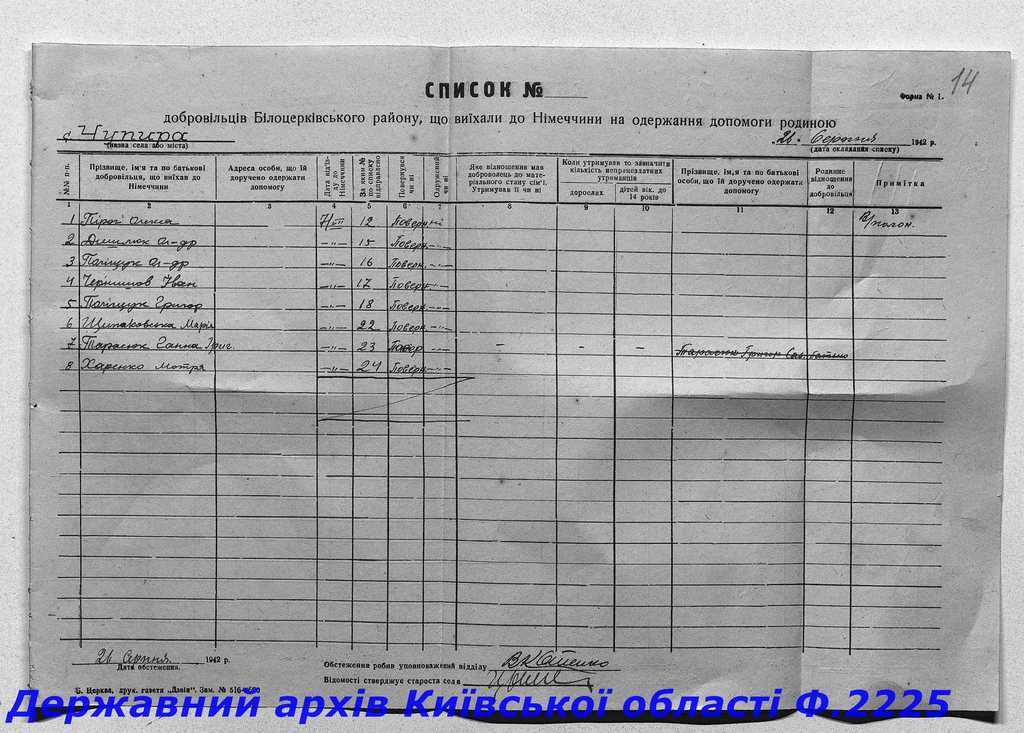 14
СПИСОК №
Форма № 1.
добровільців Білоцерківського району, що виїхали до Німеччини на одержання допомоги родиною
с. Чупира
26 Серпня 1942 р.
(назва села або міста)
(дата складання списку)
№№ п-п.
Прізвище, ім'я та по батькові добровільця, що виїхав до Німеччини
Адреса особи, що їй доручено одержати допомогу
Дата від'їзду до Німеччини
За яким № по списку відправлено
Повернувся чи ні
Одружений чи ні
Яке відношення мав доброволець до матеріального стану сім'ї. Утримував її чи ні
Коли утримував то зазначити кількість непрацездатних утриманців
дорослих
дітей вік. до 14 років
Прізвище, ім,я та по батькові особи, що їй доручено одержати допомогу
Родинне відношення до добровільця
Примітка
1 2 3 4 5 6 7 8 9 10 11 12 13
1 7/III 12 Поверн.
2 -„- 15 Поверн. -„-
3 Поліщук Ол-др -„- 16 Поверн. -„-
4 Іван -„- 17 Поверн. -„-
5 Поліщук Григор -„- 18 Поверн. -„-
6 Марія -„- 22 Поверн. -„-
7 Тарасюк Ганна Григ. -„- 23 Повер -„- - - - Тарасюк Григор батько
8 Харенко Мотря -„- 24 Поверн. -„-
26 Серпня 1942 р.
Дата обстеження.
Обстеження робив уповноважений відділу
Відомості стверджує староста села
Б. Церква, друк. газети „Дзвін". Зам. № 516
Державний архів Київської області Ф.2225